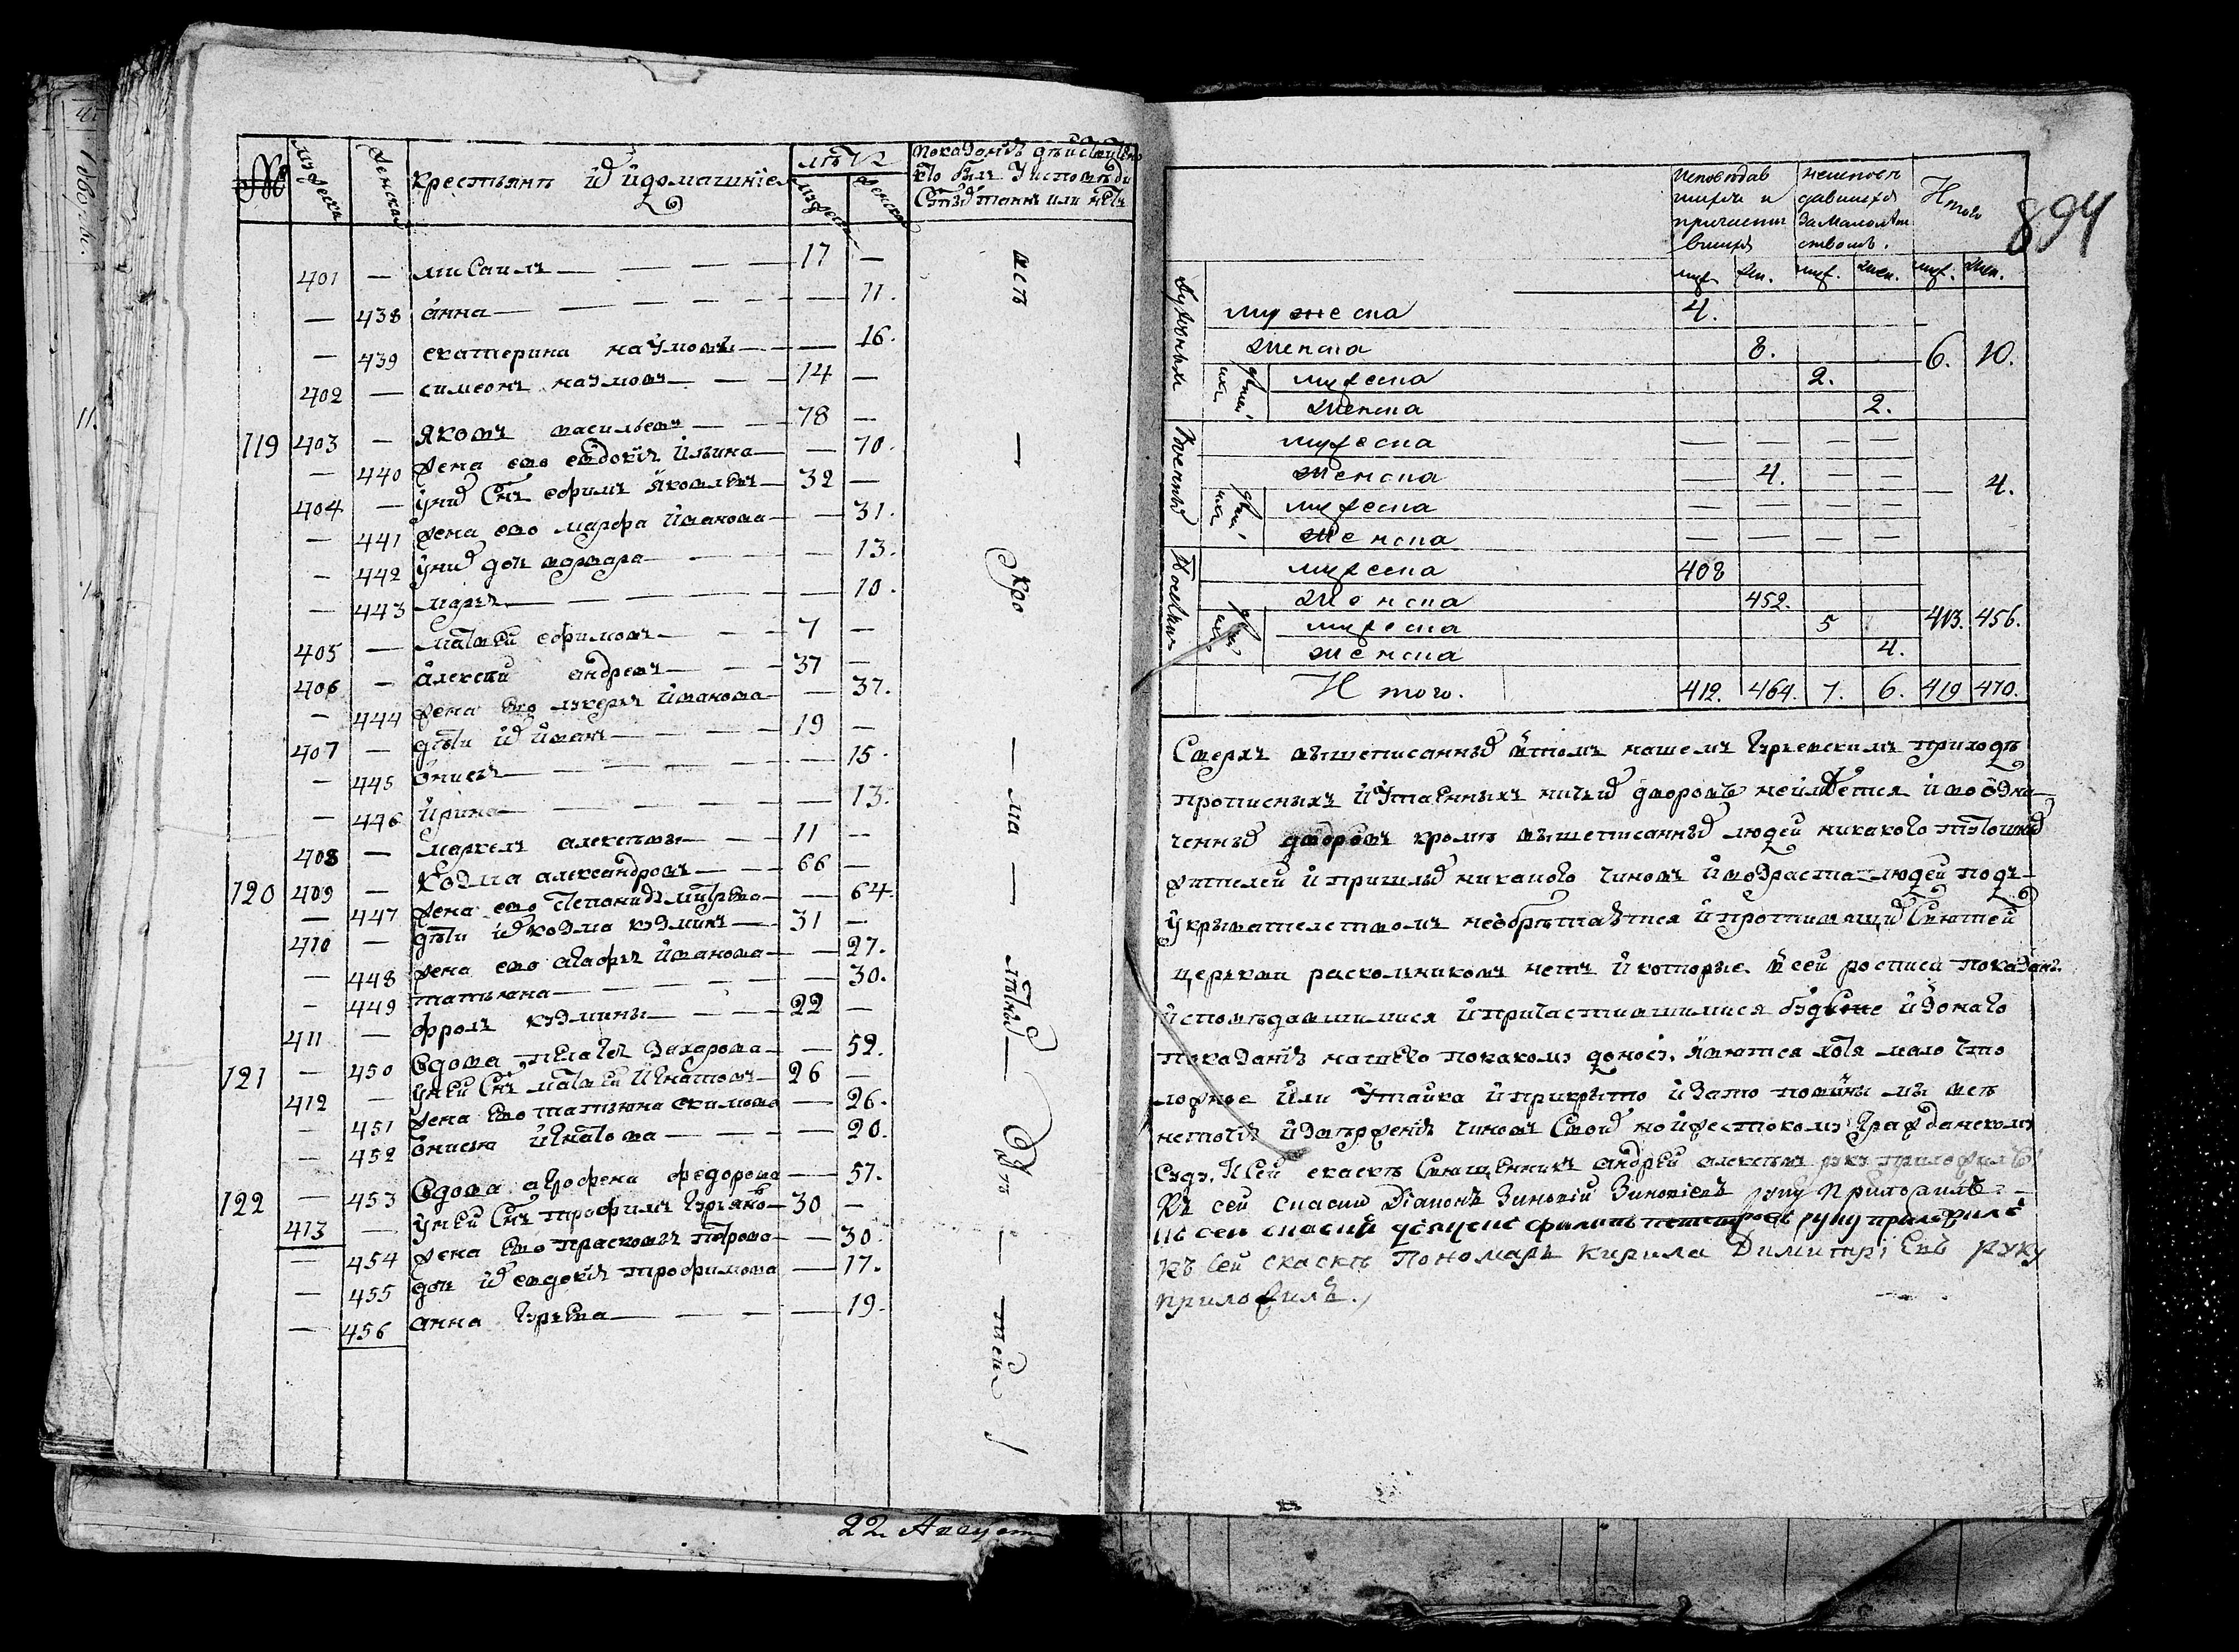 № мужеска женска крестьянъ и ихъ домашнїе летъ мужеска женска показанїе действително кто былъ у исповеди святыхъ таинъ или нетъ
401 — мисаилъ — 17 —
— 438 анна — — 11.
— 439 екатерина наумова — — 16.
402 — симеонъ наумовъ — 14 —
119 403 — яковъ васильевъ — 78 —
— 440 жена ево евдокїя ильина — — 70.
404 — у нихъ снъ ефимъ яковлевъ — 32 —
— 441 жена ево марфа иванова — — 31.
— 442 у нихъ дочь варвара — — 13.
— 443 марья — — 10.
405 — матвей ефимовъ — 7 —
406 — алексей андревъ — 37 —
— 444 жена ево лукерья иванова — — 37.
407 — дети ихъ иванъ — 19 —
— 445 анисья — — 15.
— 446 ирина — — 13.
408 — маркелъ алексеевъ — 11 —
120 409 — козма александровъ — 66 —
— 447 жена ево степанида митрева — — 64.
410 — дети ихъ козма кузминъ — 31 —
— 448 жена ево агафья иванова — — 27.
— 449 татьяна — — 30.
411 — фролъ кузминъ — 22 —
121 — 450 вдова пелагея захарова — — 52.
412 — у ней снъ матвей игнатовъ — 26 —
— 451 жена ево татьяна екимова — 26.
— 452 анисья игнатова — — 20.
122 — 453 вдова аграфена федорова — — 57.
413 — у ней снъ трофимъ гурьяно — 30 —
— 454 жена ево прасковья петрова — — 30.
— 455 дочь ихъ евдокїя трофимова — 17.
— 456 анна гурьева — — 19.
все — кро — ма — летнихъ — де — тей
22 Август
894
исповедав шихся и причасти вшихся неисповедавшихся за малолетством. Итого
муж. жен. муж. жен. муж. жен.
Духовныхъ мужеска 4. 6. 10.
женска 8.
детей ихъ мужеска 2.
женска 2.
Военныхъ мужеска — — — —
женска — 4. — — — 4.
детей ихъ мужеска — — — —
женска — — — —
Посадских мужеска 408 413. 456.
женска 452.
детей ихъ мужеска 5
женска 4.
Итого. 412. 464. 7. 6. 419 470.
Сверхъ вышеписанныхъ в томъ нашемъ приходе
прописныхъ и утаенныхъ ничьихъ дворовъ неимеется и во озна
ченныхъ дворовъ кроме вышеписанныхъ людей никакого
жителей и пришлыхъ никакого чиновъ и возраста людей подъ
укрывателствомъ необретается и противящихся святей
церькви расколниковъ нетъ и которые в сей росписи показаны
исповедавшимися и причастившимися буде не и
показанїя нашего по какому доносу явится хотя мало что
ложное или утайка и прикрыто и за то повинны мы все
не точїю чиновъ своихъ но и жестокому гражданскому
суду. К сей скаске священникъ андрей алексеевъ руку приложилъ
Къ сей скаски Дїаконъ Зиновїй Зиновїевъ руку приложилъ
къ сей скаски филипъ руку приложилъ
къ сей скаске Пономарь Кирила Димитрїевъ руку
приложилъ.